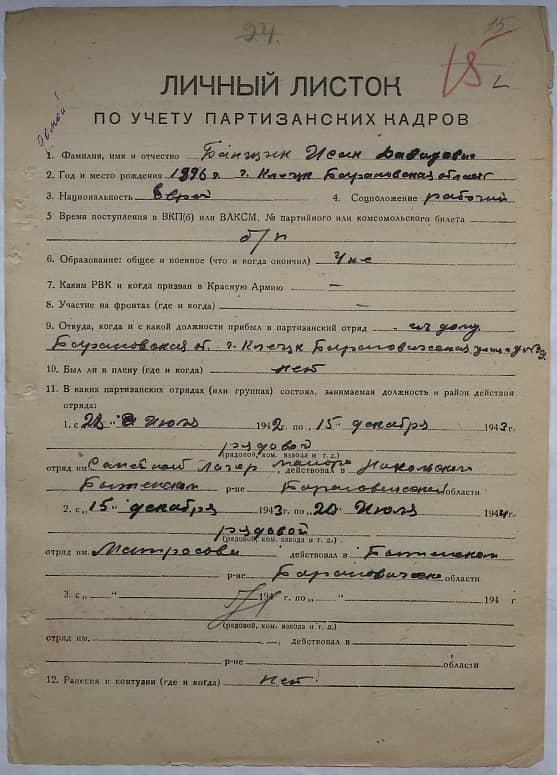 24.
15
15
ЛИЧНЫЙ ЛИСТОК
ПО УЧЕТУ ПАРТИЗАНСКИХ КАДРОВ
1. Фамилия, имя и отчество Банщик Исак Давидович
2. Год и место рождения 1896 г. Клецк Барановская област
3. Национальность еврей 4. Соцположение рабочий
5 Время поступления в ВКП(б) или ВЛКСМ, № партийного или комсомольского билета
б/п
6. Образование: общее и военное (что и когда окончил)
7. Каким РВК и когда призван в Красную Армию —
8. Участие на фронтах (где и когда) —
9. Откуда, когда и с какой должности прибыл в партизанский отряд
Барановская об. г. Клецк Барановичская
10. Был ли в плену (где и когда) нет
11. В каких партизанских отрядах (или группах) состоял, занимаемая должность и район действия
отряда:
1. с „ Июля 1942 г. по „15" декабря 1943 г.
рядовой
(рядовой, ком. взвода и т. д.)
отряд им. Семейной лагер действовал в
р-не области
2. с „15" декабря 1943 г. по „20" Июля 1944 г.
рядовой
(рядовой, ком. взвода и т. д.)
отряд им. Матросова действовал в
р-не области
3. с „ " 194 г. по „ " 194 г
(рядовой, ком. взвода и т. д.)
отряд им. , действовал в
р-не области
12. Ранения и контузии (где и когда) нет